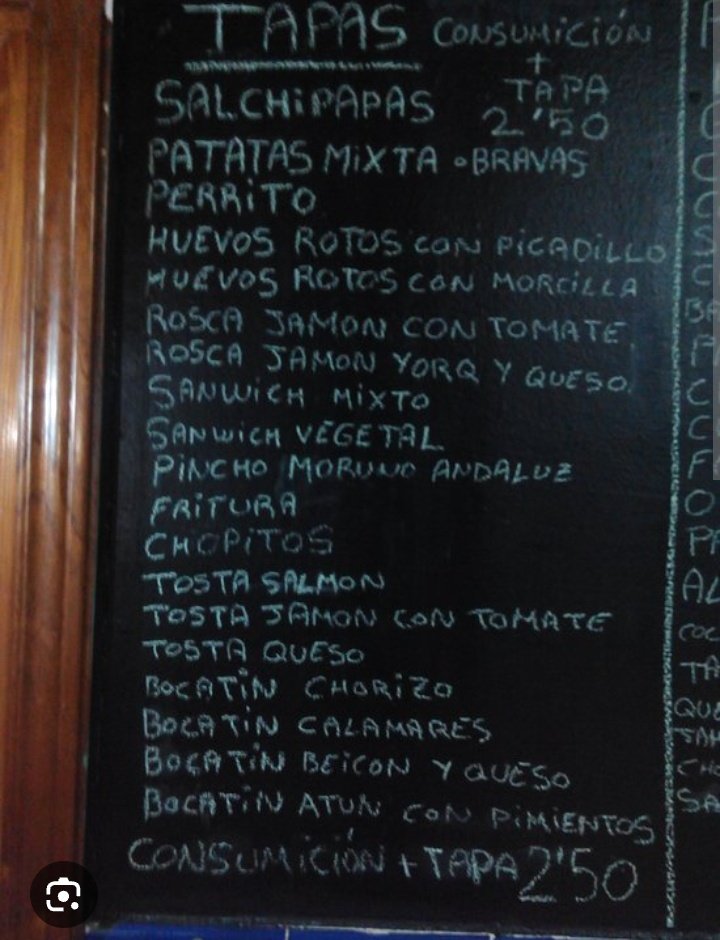 TAPAS CONSUMICIÓN
+
TAPA
SALCHIPAPAS 2'50
PATATAS MIXTA • BRAVAS
PERRITO
HUEVOS ROTOS CON PICADILLO
HUEVOS ROTOS CON MORCILLA
ROSCA JAMON CON TOMATE
ROSCA JAMON YORQ Y QUESO
SANWICH MIXTO
SANWICH VEGETAL
PINCHO MORUNO ANDALUZ
FRITURA
CHOPITOS
TOSTA SALMON
TOSTA JAMON CON TOMATE
TOSTA QUESO
BOCATIN CHORIZO
BOCATIN CALAMARES
BOCATIN BEICON Y QUESO
BOCATIN ATUN CON PIMIENTOS
CONSUMICIÓN + TAPA 2'50